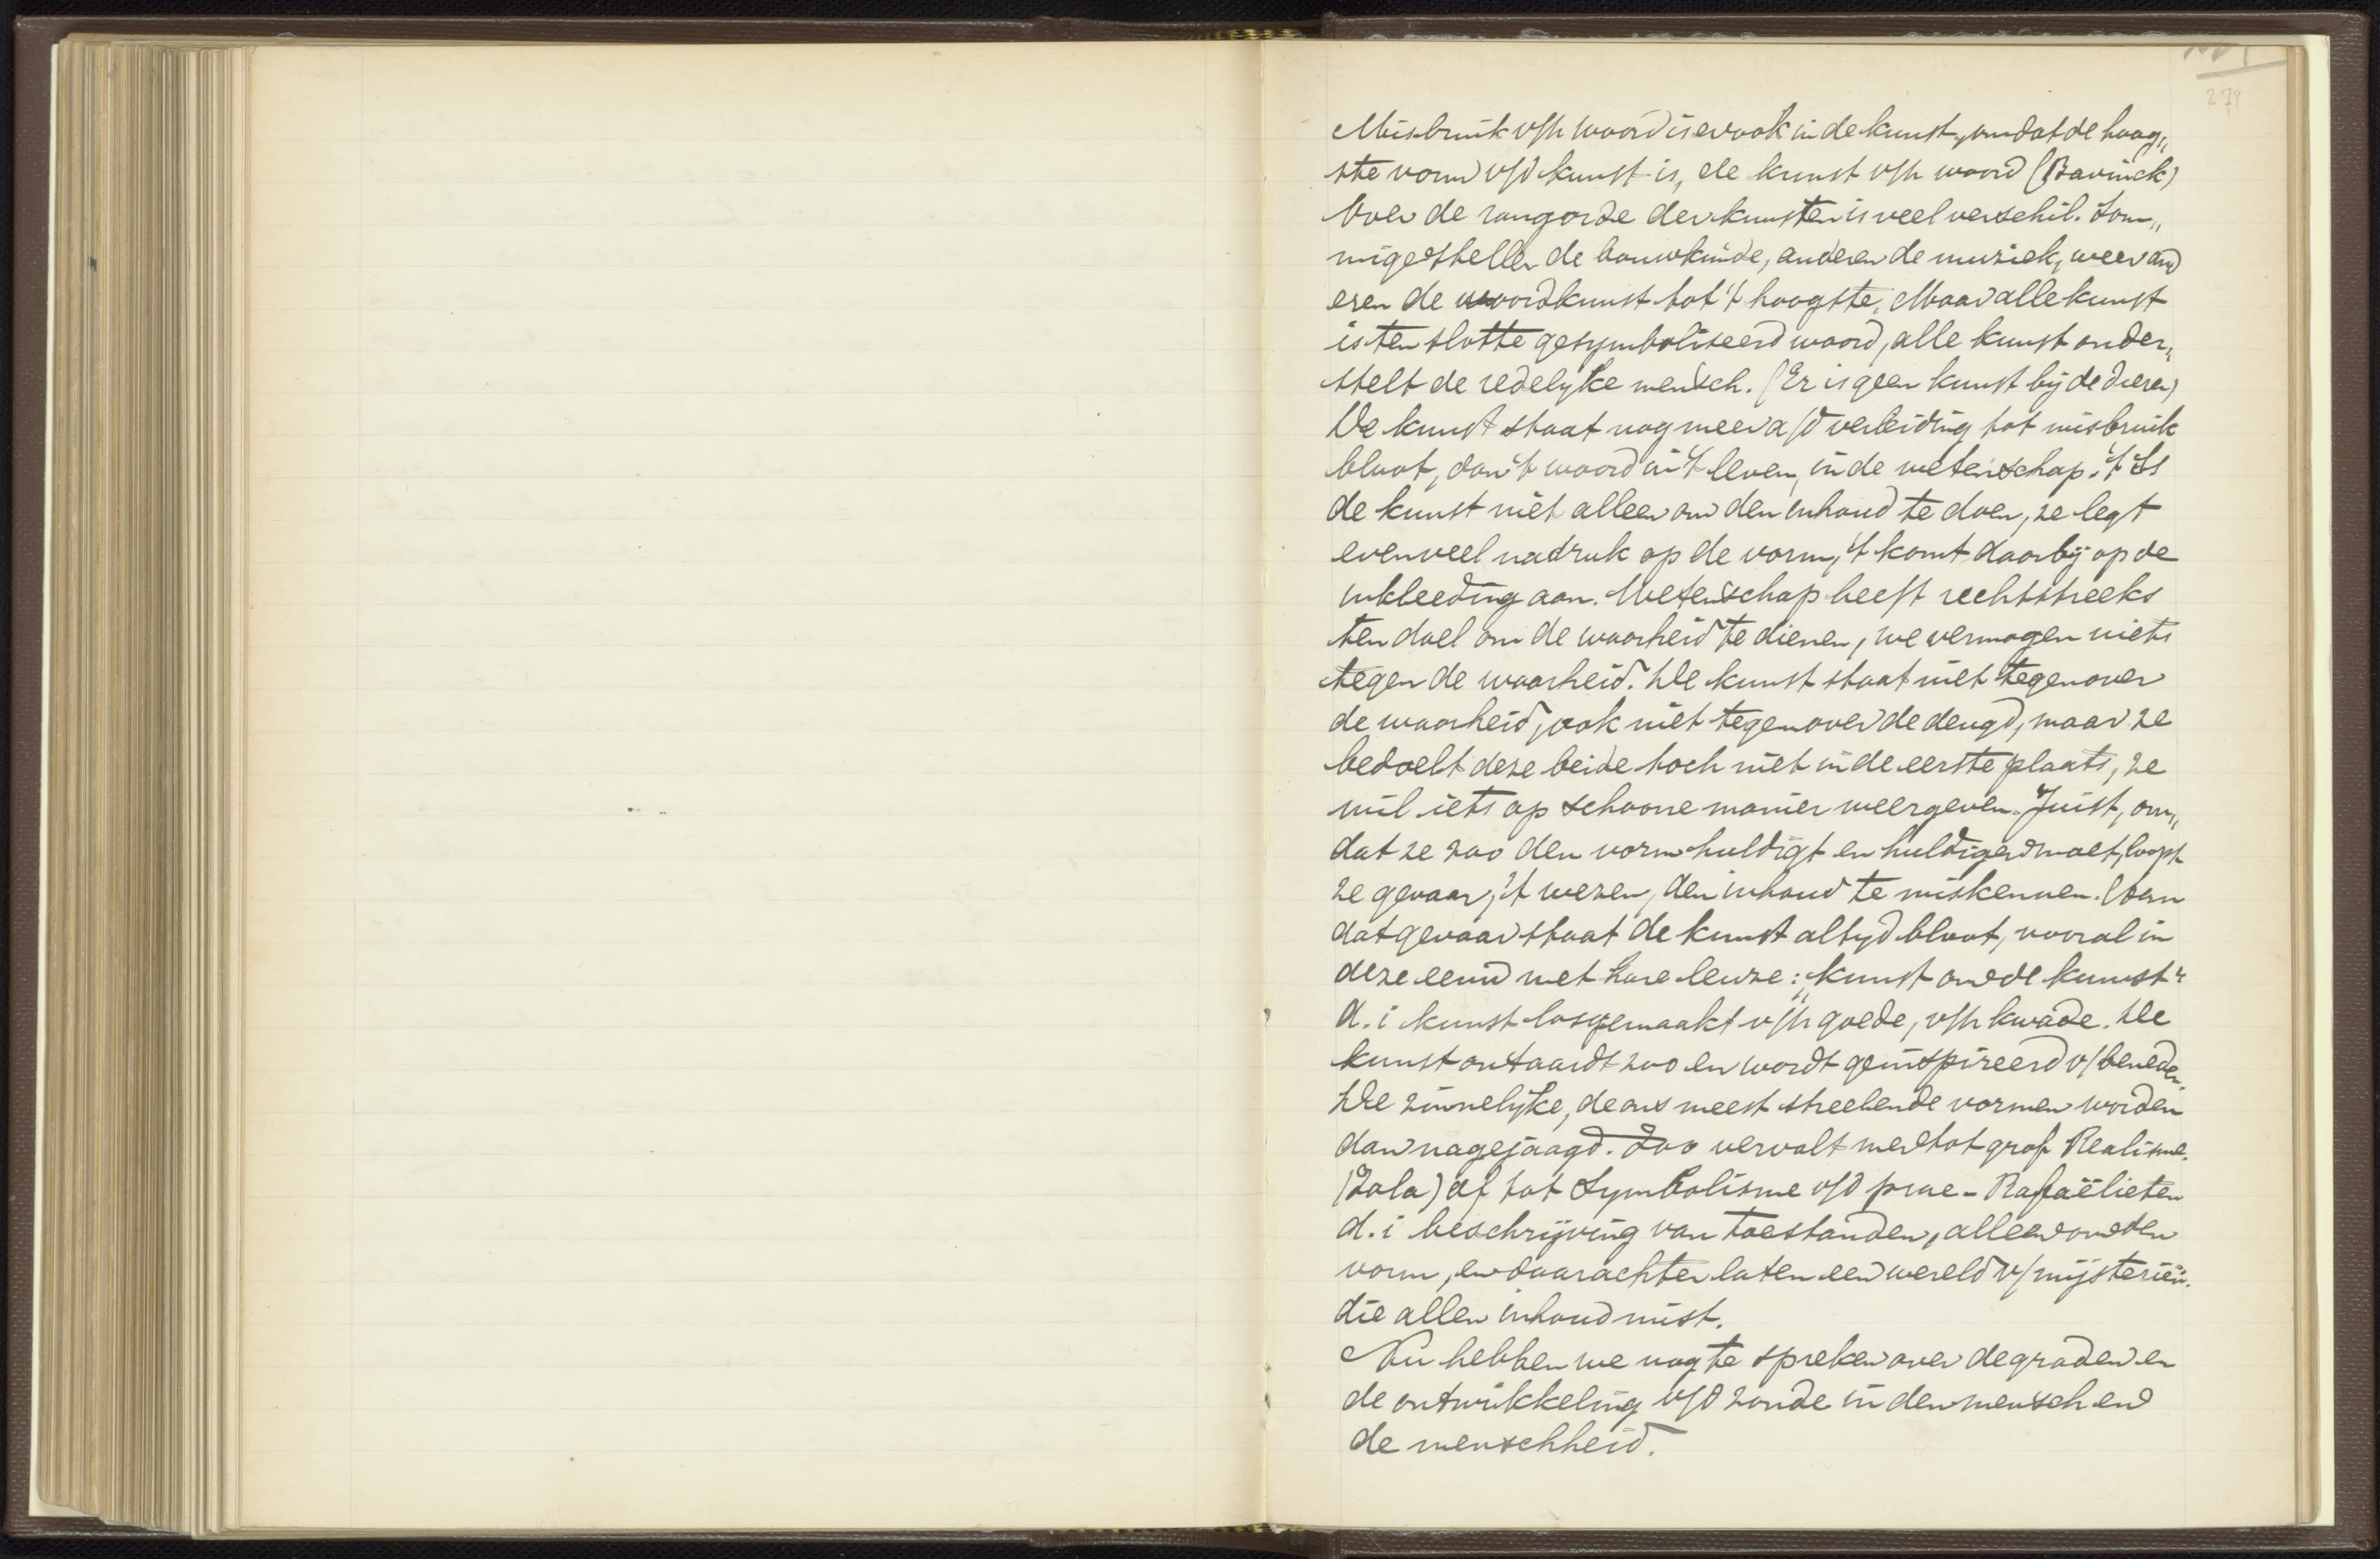 279
Misbruik v/h woord is er ook in de kunst, omdat de hoog„
ste vorm v/d kunst is, de kunst v/h woord (Bavinck)
Over de rangorde der kunsten is veel verschil. Som„
mige stellen de bouwkunde, anderen de muziek, weer and
eren de woordkunst tot 't hoogste. Maar alle kunst
is ten slotte gesymboliseerd woord, alle kunst onder„
stelt de redelyke mensch. (Er is geen kunst bij de dieren)
De kunst staat nog meer a/d verleiding tot misbruik
bloot, dan 't woord in 't leven, in de wetenschap. 't Is
de kunst niet alleen om den inhoud te doen, ze legt
evenveel nadruk op de vorm, 't komt daarbij op de
inkleeding aan. Wetenschap heeft rechtstreeks
ten doel om de waarheid te dienen, we vermogen niets
tegen de waarheid. De kunst staat niet tegenover
de waarheid, ook niet tegenover de deugd, maar ze
bedoelt deze beide toch niet in de eerste plaats, ze
wil iets op schoone manier weergeven. Juist, om„
dat ze zoo den vorm huldigt en huldigen moet, loopt
ze gevaar, 't wezen, den inhoud te miskennen. Aan
dat gevaar staat de kunst altyd bloot, vooral in
deze eeuw met hare leuze: „kunst om de kunst"
d. i kunst losgemaakt v/h goede, v/h kwade. De
kunst ontaardt zoo en wordt geinspireerd v/beneden.
De zinnelijke, de ons meest streelende vormen worden
dan nagejaagd. Zoo vervalt men tot grof Realisme.
(Zola) of tot Symbolisme v/d prae-Rafaëlieten
d. i beschrijving van toestanden, alleen om den
vorm, en daarachter laten een wereld v/mijsteriën.
die allen inhoud mist.
Nu hebben we nog te spreken over de graden en
de ontwikkeling v/d zonde in den mensch en
de menschheid.